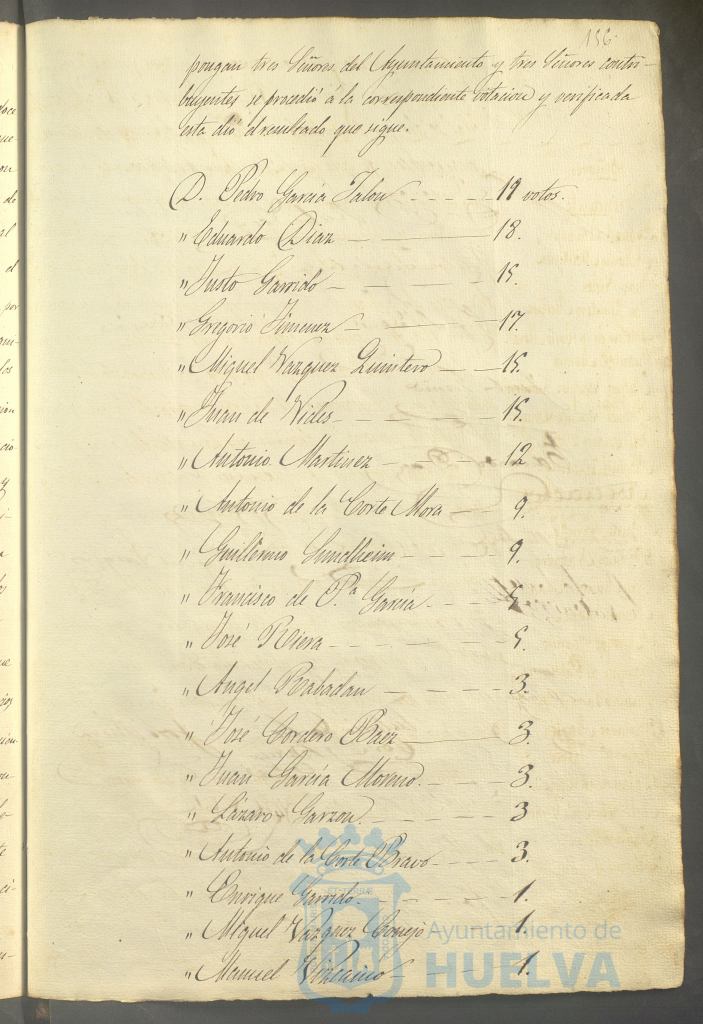 156
pongan tres Señores del Ayuntamiento y tres Señores contri-
buyentes se procedió á la correspondiente votacion y verificada
esta dió el resultado que sigue.
D. Pedro Garcia Jalon - - - - - 19 votos.
" Eduardo Diaz — — 18.
" Justo Garrido — — — 15.
" Gregorio Jimenez — — — 17.
" Miguel Vazquez Quintero — — 15.
" Juan de Vides — — — 15.
" Antonio Martinez — — — 12
" Antonio de la Corte Mora — — 9.
" Guillermo Sundheim — — — 9.
" Francisco de P.a Garcia - - - 5.
" José Riera - — — — 5.
" Angel Rabadan — — — — 3.
" José Cordero Baez — 3.
" Juan Garcia Moreno. — — — 3.
" Lázaro Garzon. — — — 3
" Antonio de la Corte Bravo - - - 3.
" Enrique Garrido - - - - - 1.
" Miguel Vazquez Conejo 1.
" Manuel Vizcaino — — — 1.
Ayuntamiento de
HUELVA